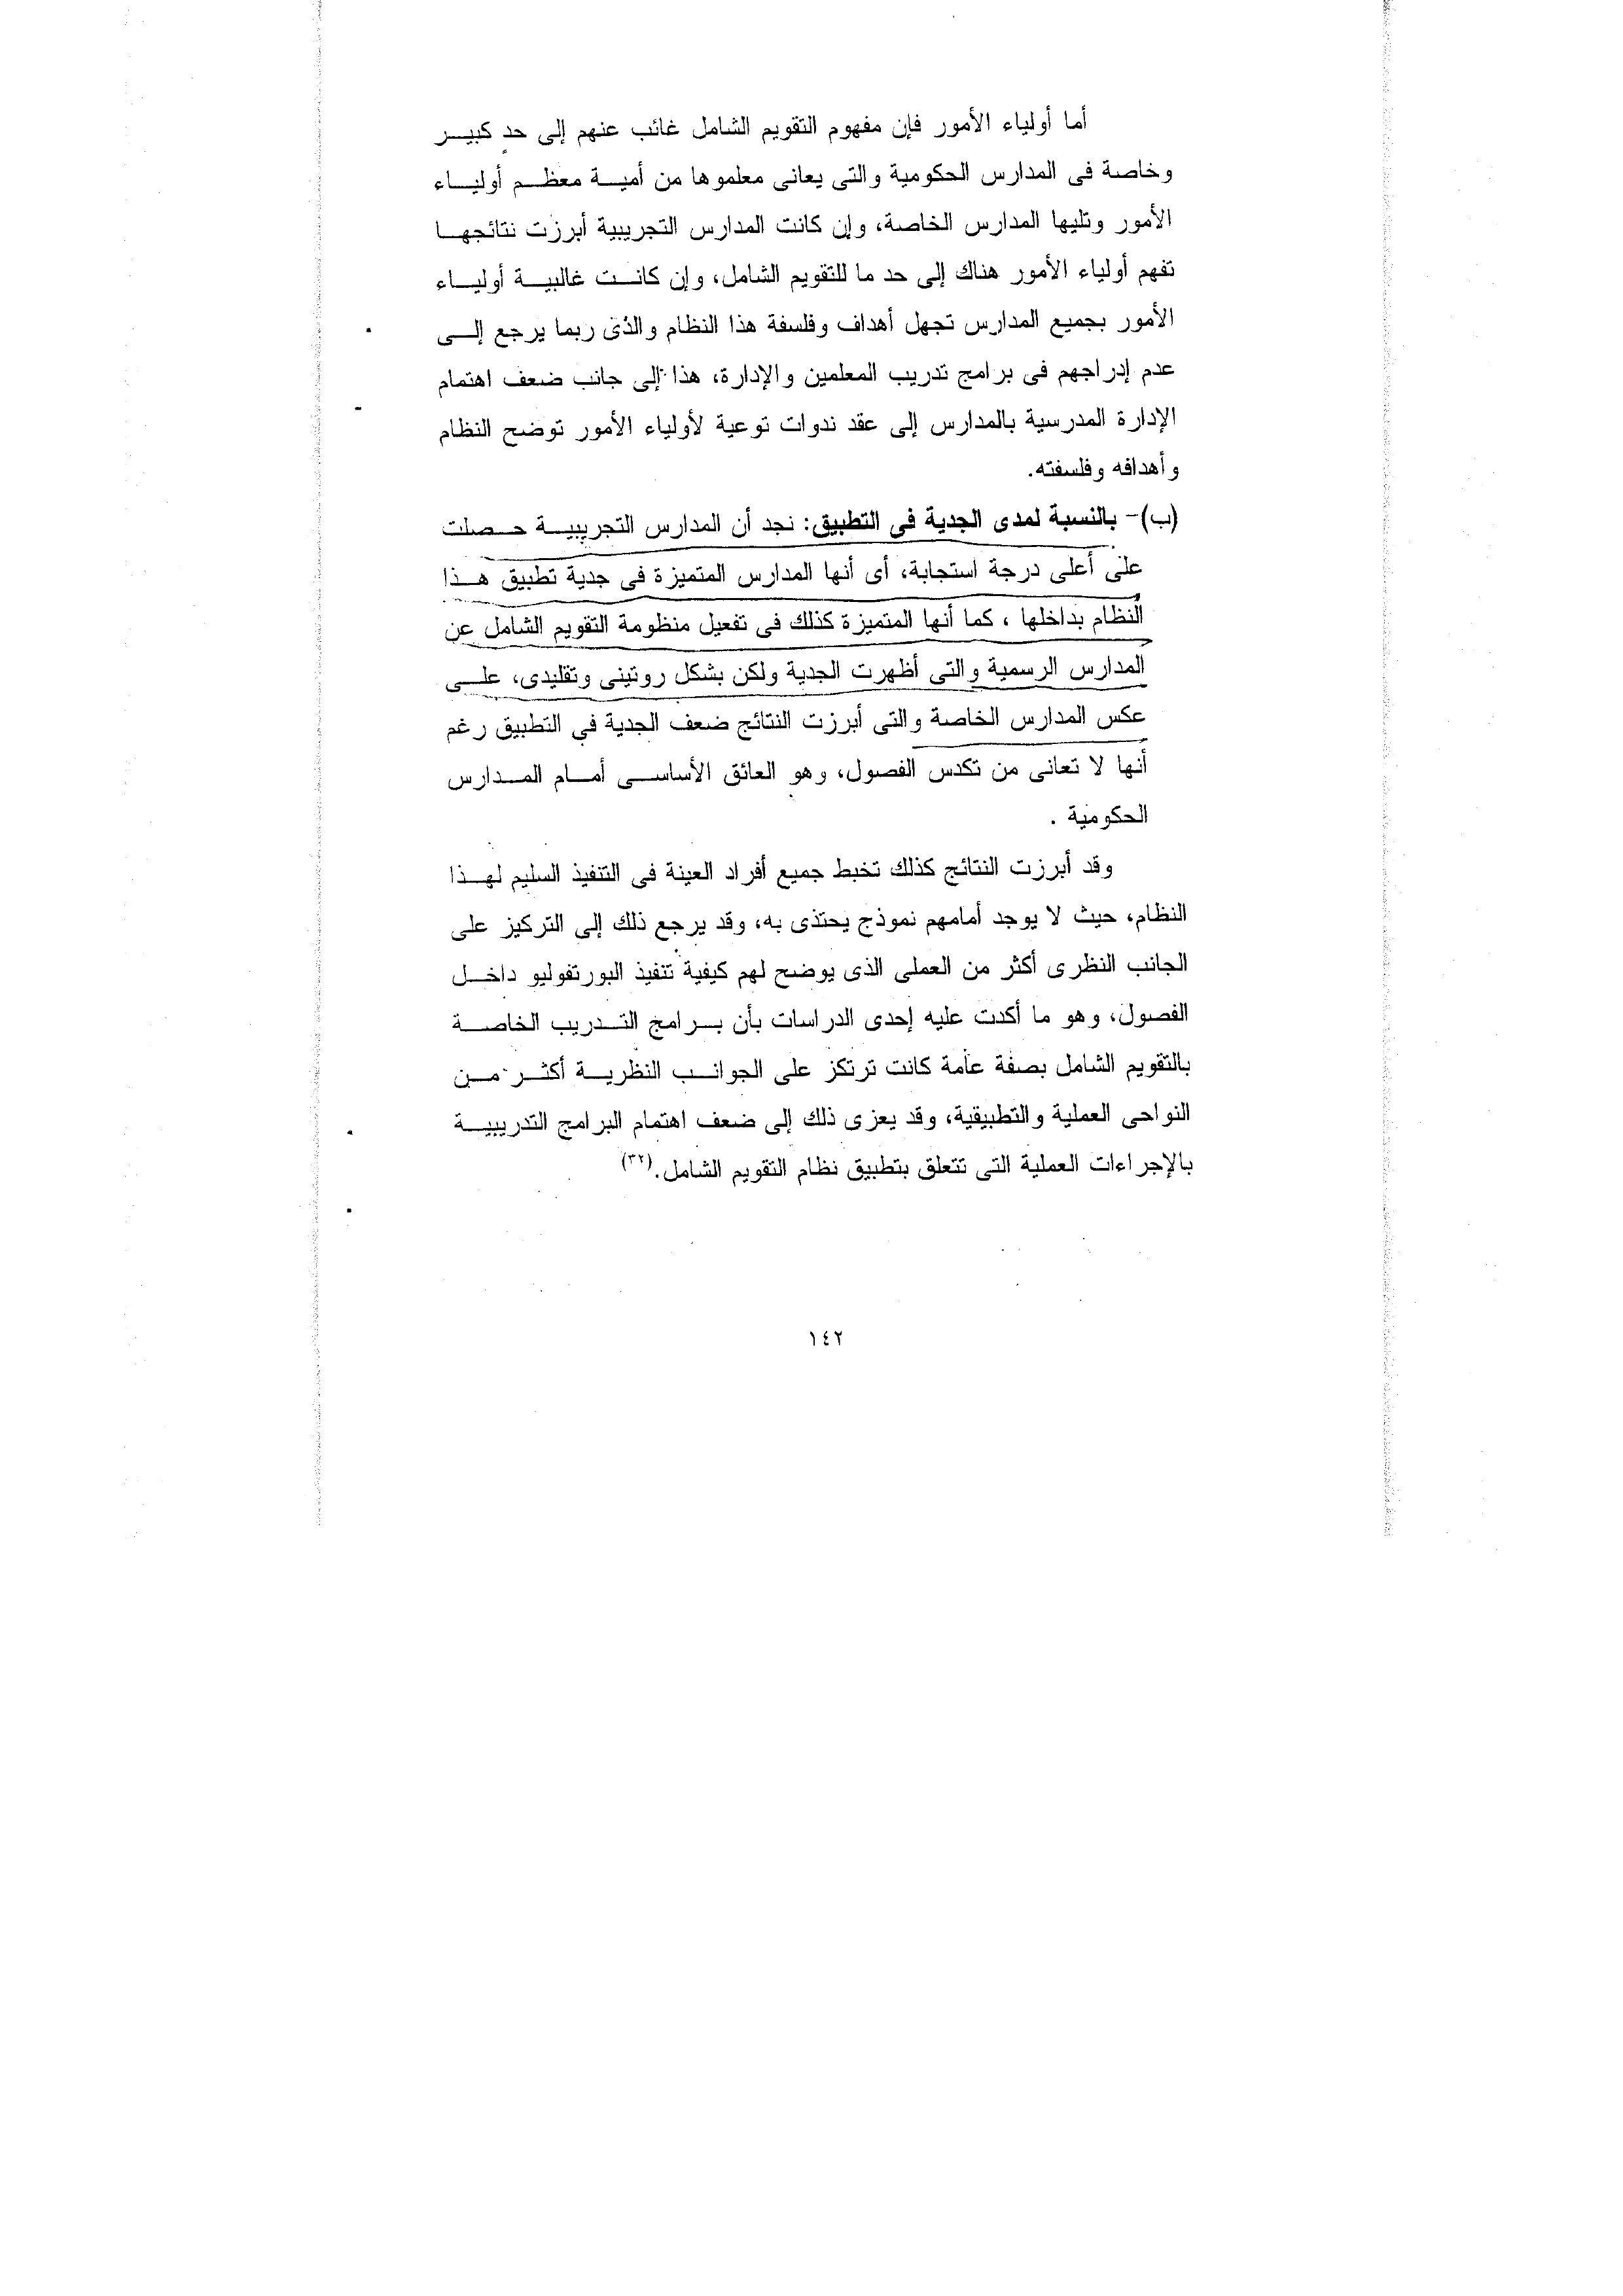 أما أولياء الأمور فإن مفهوم التقويم الشامل غائب عنهم إلى حدٍ كبيــر
وخاصة فى المدارس الحكومية والتى يعانى معلموها من أميــة معظــم أوليــاء
الأمور وتليها المدارس الخاصة، وإن كانت المدارس التجريبية أبرزت نتائجهــا
تفهم أولياء الأمور هناك إلى حد ما للتقويم الشامل، وإن كانــت غالبيــة أوليــاء
الأمور بجميع المدارس تجهل أهداف وفلسفة هذا النظام والذى ربما يرجع إلــى
عدم إدراجهم فى برامج تدريب المعلمين والإدارة، هذا إلى جانب ضعف اهتمام
الإدارة المدرسية بالمدارس إلى عقد ندوات توعية لأولياء الأمور توضح النظام
وأهدافه وفلسفته.
(ب)- بالنسبة لمدى الجدية فى التطبيق: نجد أن المدارس التجريبيــة حــصلت
على أعلى درجة استجابة، أى أنها المدارس المتميزة فى جدية تطبيق هــذا
النظام بداخلها ، كما أنها المتميزة كذلك فى تفعيل منظومة التقويم الشامل عن
المدارس الرسمية والتى أظهرت الجدية ولكن بشكل روتينى وتقليدى، علــى
عكس المدارس الخاصة والتى أبرزت النتائج ضعف الجدية في التطبيق رغم
أنها لا تعانى من تكدس الفصول، وهو العائق الأساســى أمــام المــدارس
الحكومية .
وقد أبرزت النتائج كذلك تخبط جميع أفراد العينة فى التنفيذ السليم لهــذا
النظام، حيث لا يوجد أمامهم نموذج يحتذى به، وقد يرجع ذلك إلى التركيز على
الجانب النظرى أكثر من العملى الذى يوضح لهم كيفية تنفيذ البورتفوليو داخــل
الفصول، وهو ما أكدت عليه إحدى الدراسات بأن بــرامج التــدريب الخاصــة
بالتقويم الشامل بصفة عامة كانت ترتكز على الجوانــب النظريــة أكثــر مــن
النواحى العملية والتطبيقية، وقد يعزى ذلك إلى ضعف اهتمام البرامج التدريبيــة
بالإجراءات العملية التى تتعلق بتطبيق نظام التقويم الشامل.(٣٢)
١٤٢